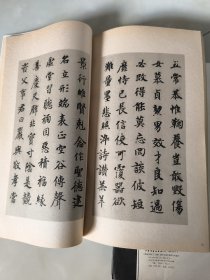 五常恭惟鞠養豈敢毀傷
女慕貞絜男效才良知過
必改得能莫忘罔談彼短
靡恃己長信使可覆器欲
難量墨悲絲染詩讚羔羊
景行維賢剋念作聖德建
名立形端表正空谷傳聲
虛堂習聽禍因惡積福緣
善慶尺璧非寶寸陰是競
資父事君曰嚴與敬孝當